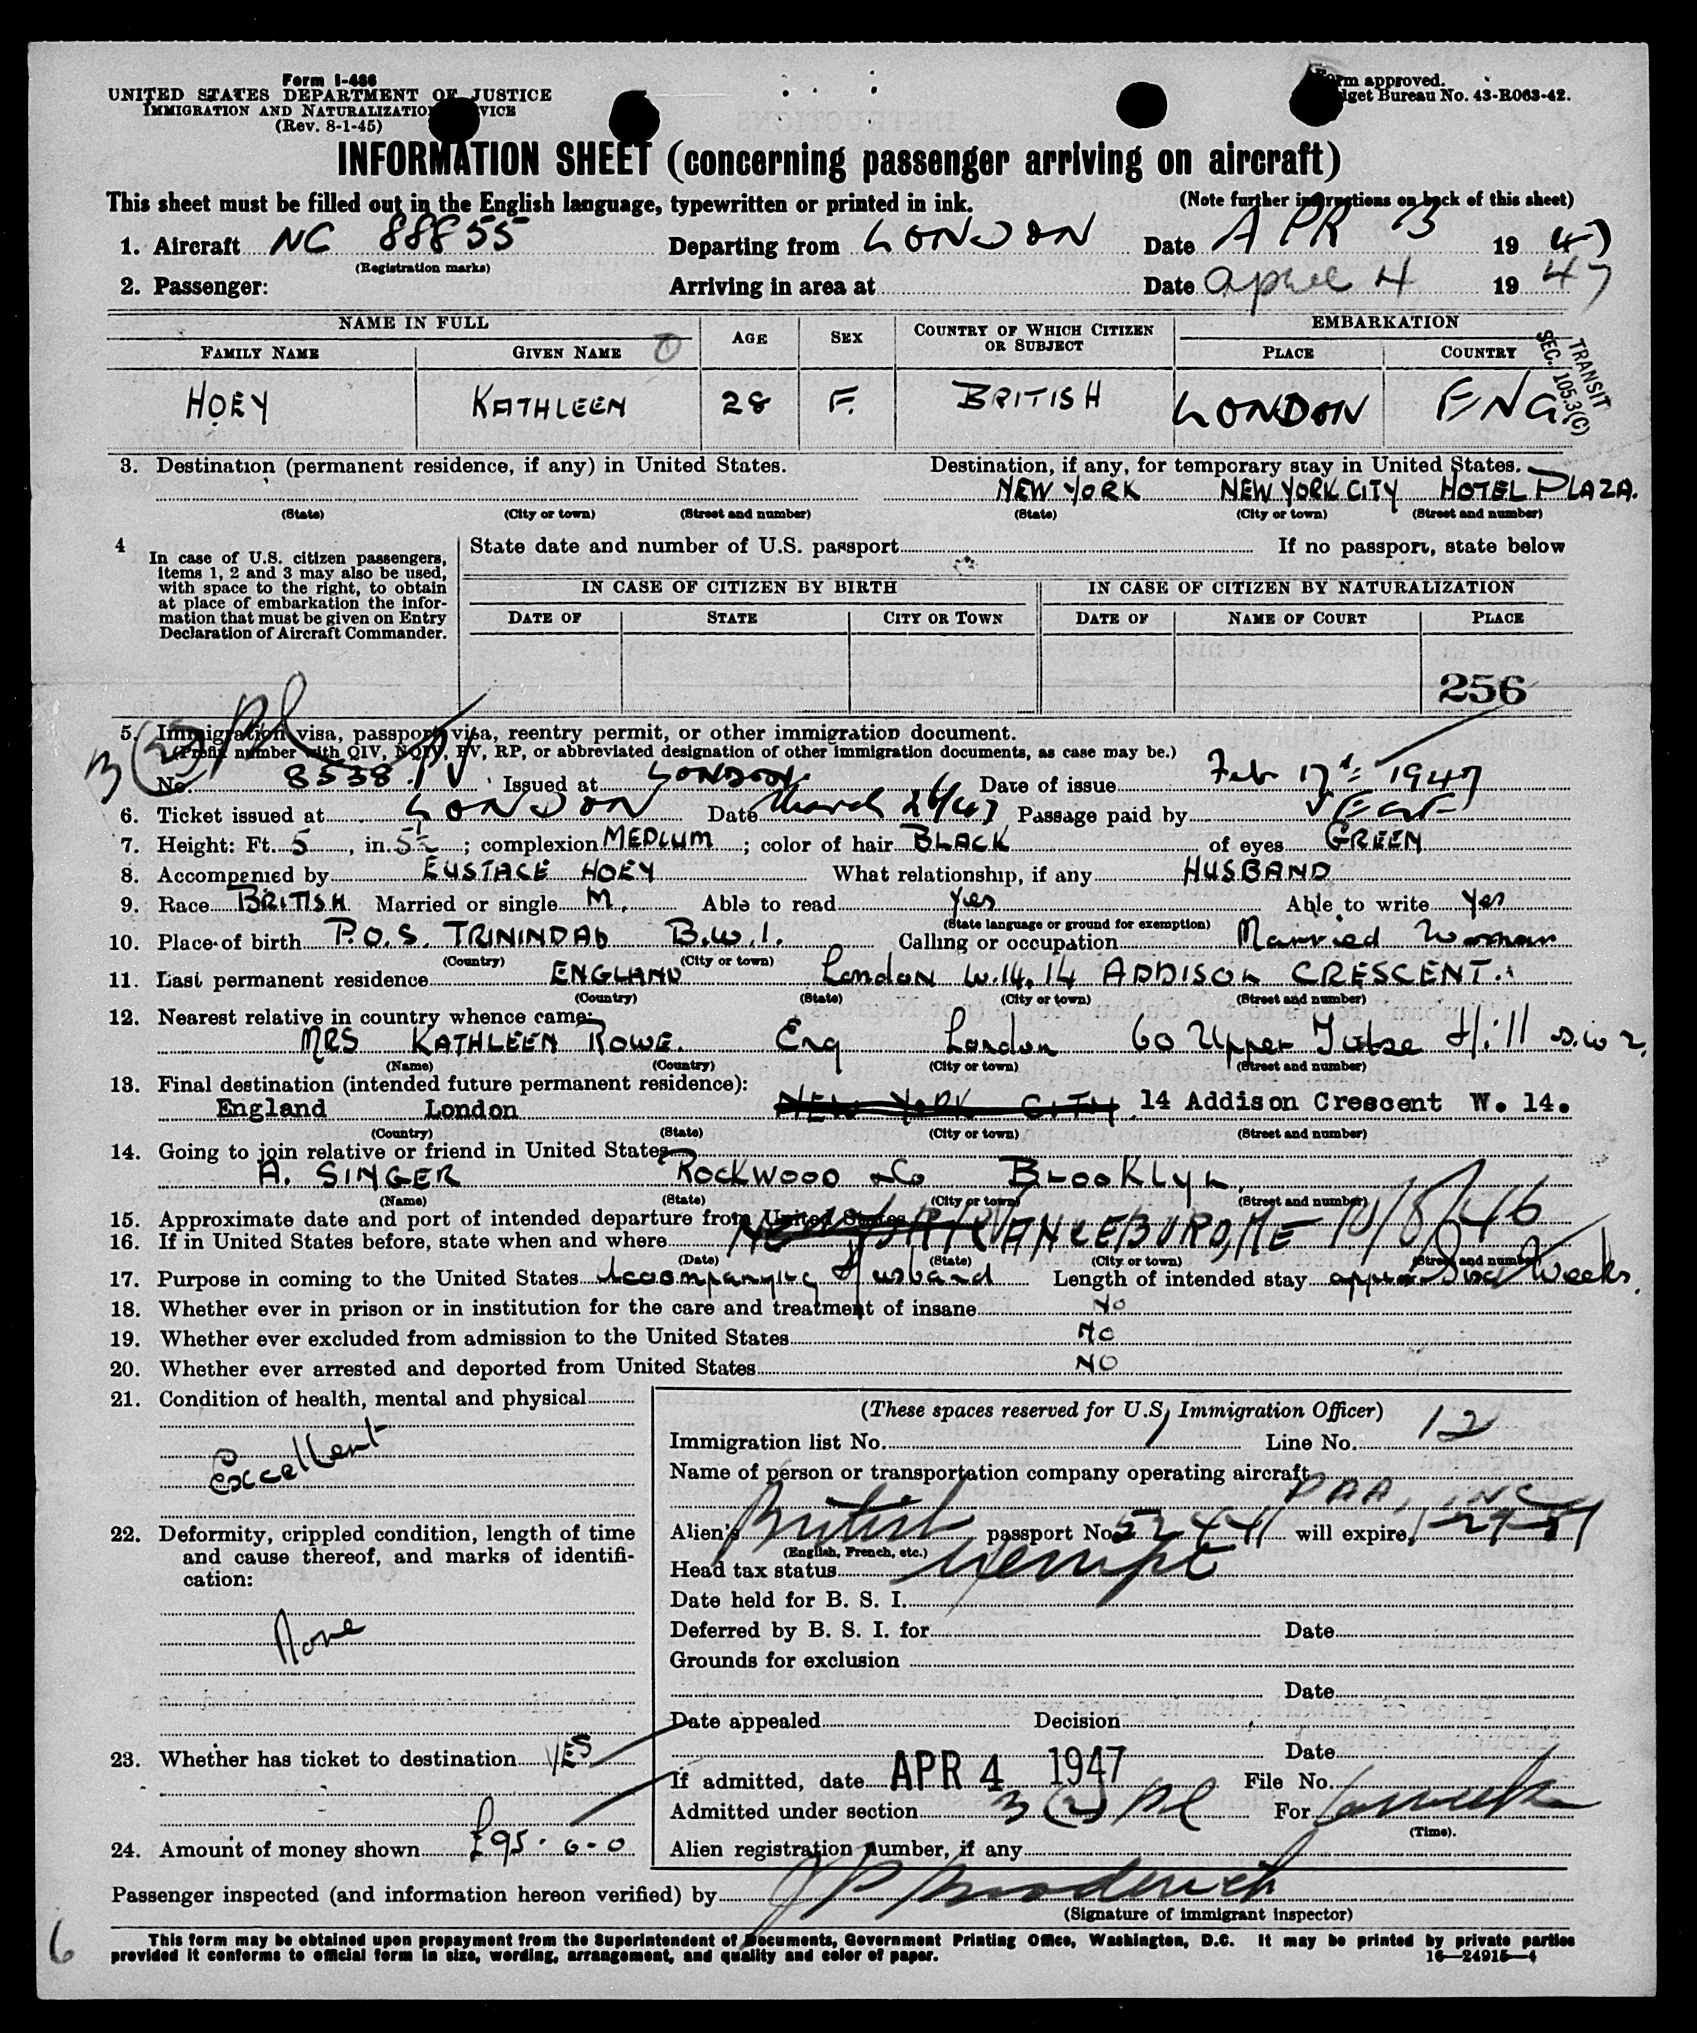 Form I-466
UNITED STATES DEPARTMENT OF JUSTICE
IMMIGRATION AND NATURALIZATION SERVICE
(Rev. 8-1-45)
Form approved.
Budget Bureau No. 43-R063-42.
INFORMATION SHEET (concerning passenger arriving on aircraft)
This sheet must be filled out in the English language, typewritten or printed in ink.
(Note further instructions on back of this sheet)
1. Aircraft NC 88855 Departing from LONDON Date APR 3 19 47
(Registration marks)
2. Passenger: Arriving in area at Date April 4 19 47
NAME IN FULL AGE SEX COUNTRY OF WHICH CITIZEN OR SUBJECT EMBARKATION
FAMILY NAME GIVEN NAME PLACE COUNTRY
TRANSIT
SEC. 105.3(C)
HOEY KATHLEEN 28 F. BRITISH LONDON ENG
3. Destination (permanent residence, if any) in United States. Destination, if any, for temporary stay in United States.
NEW YORK NEW YORK CITY HOTEL PLAZA.
(State) (City or town) (Street and number) (State) (City or town) (Street and number)
4 In case of U.S. citizen passengers, items 1, 2 and 3 may also be used, with space to the right, to obtain at place of embarkation the information that must be given on Entry Declaration of Aircraft Commander.
State date and number of U.S. passport If no passport, state below
IN CASE OF CITIZEN BY BIRTH IN CASE OF CITIZEN BY NATURALIZATION
DATE OF STATE CITY OR TOWN DATE OF NAME OF COURT PLACE
256
5. Immigration visa, passport visa, reentry permit, or other immigration document.
(Prefix number with QIV, NQIV, PV, RP, or abbreviated designation of other immigration documents, as case may be.)
3(2)
No. 8538 PV Issued at LONDON. Date of issue Feb 17th 1947
6. Ticket issued at LONDON Date March 26/47 Passage paid by
7. Height: Ft. 5, in. 5½; complexion MEDIUM; color of hair BLACK of eyes GREEN
8. Accompanied by EUSTACE HOEY What relationship, if any HUSBAND
9. Race BRITISH Married or single M. Able to read Yes Able to write Yes
(State language or ground for exemption)
10. Place of birth P.O.S. TRININDAD B.W.I. Calling or occupation Married Woman
(Country) (City or town)
11. Last permanent residence ENGLAND London W.14. 14 ADDISON CRESCENT.
(Country) (State) (City or town) (Street and number)
12. Nearest relative in country whence came:
MRS KATHLEEN ROWE. Eng London 60 Upper Tulse Hill S.W 2.
(Name) (Country) (City or town) (Street and number)
13. Final destination (intended future permanent residence):
England London NEW YORK CITY 14 Addison Crescent W. 14.
(Country) (State) (City or town) (Street and number)
14. Going to join relative or friend in United States
A. SINGER ROCKWOOD & Co BROOKLYN.
(Name) (State) (City or town) (Street and number)
15. Approximate date and port of intended departure from United States
16. If in United States before, state when and where VANCEBORO, ME 10/8/46
(Date) (State) (City or town) (Street and number)
17. Purpose in coming to the United States Accompanying Husband Length of intended stay Weeks.
18. Whether ever in prison or in institution for the care and treatment of insane No
19. Whether ever excluded from admission to the United States NO
20. Whether ever arrested and deported from United States NO
21. Condition of health, mental and physical
Excellent
22. Deformity, crippled condition, length of time and cause thereof, and marks of identification:
None
23. Whether has ticket to destination YES
24. Amount of money shown £95-0-0
(These spaces reserved for U.S. Immigration Officer)
Immigration list No. 1 Line No. 12
Name of person or transportation company operating aircraft
PAA, INC
Alien's British passport No. 52441 will expire
(English, French, etc.)
Head tax status Exempt
Date held for B. S. I.
Deferred by B. S. I. for Date
Grounds for exclusion
Date
Date appealed Decision
Date
If admitted, date APR 4 1947 File No.
Admitted under section 3 (2) For
(Time).
Alien registration number, if any
Passenger inspected (and information hereon verified) by
(Signature of immigrant inspector)
6
This form may be obtained upon prepayment from the Superintendent of Documents, Government Printing Office, Washington, D.C. It may be printed by private parties
provided it conforms to official form in size, wording, arrangement, and quality and color of paper. 16—24915-4